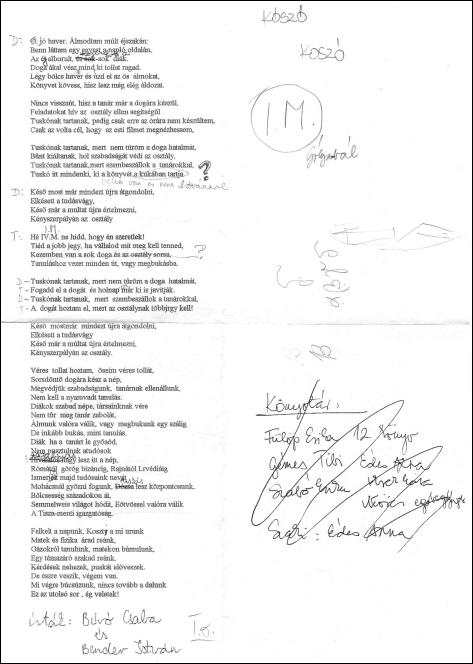 KÓSZÓ
KOSZÓ
I.M.
D: Ó, jó haver. Álmodtam múlt éjszakán:
Benn láttam egy egyest a napló oldalán,
Az ég elborult, és sok-sok diák.
Doga által vész mind ki tollat ragad.
Légy bölcs haver és űzd el az ós álmokat,
Könyvet kövess, hisz lesz még elég áldozat.
Nincs visszaút, hisz a tanár már a dogára készül,
Feladatokat hív az osztály ellen segítségül
Tuskónak tartanak, pedig csak erre az órára nem készültem,
Csak az volta cél, hogy az esti filmet megnézhessem,
Tuskónak tartanak, mert nem tűröm a doga hatalmát,
Bánt kiáltanak, hol szabadságát védi az osztály,
Tuskónak tartanak, mert szembeszállok a tanárokkal,
Tuskó itt mindenki, ki a könyvét a kukában tartja
?
D: Késő most már mindezt újra átgondolni,
Elkésett a tudásvágy,
Késő már a multat újra értelmezni,
Kényszerpályán az osztály
I.M.
T: Hé IV.M. ne hidd, hogy én szeretlek!
Tiéd a jobb jegy, ha vállalod mit meg kell tenned,
Kezemben van a sok doga és az osztály sorsa,
?
Tanuláshoz vezet minden út, vagy megbukásba.
D- Tuskónak tartanak, mert nem tűröm a doga hatalmát,
T- Fogadd el a dogát és holnap már ki is javítják.
D- Tuskónak tartanak, mert szembeszállok a tanárokkal,
T- A dogát hoztam el, mert az osztálynak többjegy kell!
Késő mostmár mindezt újra átgondolni,
Elkésett a tudásvágy
Késő már a múltat újra értelmezni,
Kényszerpályán az osztály.
Véres tollat hoztam, őseim véres tollát,
Sorsdöntő dogára kész a nép,
Megvédjük szabadságunk, tanárnak ellenállunk,
Nem kell a nyamvadt tanulás.
Diákok szabad népe, társainknak vére
Nem tűr meg tanár zabolát,
Álmunk valóra válik, vagy megbukunk egy szálig
De inkább bukás, mint tanulás.
Diák ha a tanárt le győzöd,
Nem pusztulnak utódsok
nagy lesz itt a nép,
Rómától görög bizáncig, Rajnától Lrvédiáig
Ismerjék majd tudósaink nevét
Mohácsnál győzni fogunk, lesz központosunk,
Bölcsesség századokon át,
Semmelweis világot hódít, Eötvössel valóra válik
A Tisza-menti igazgatóság.
Felkelt a napunk, Koszty a mi urunk
Matek és fizika árad reánk,
Gázokról tanulunk, matekon bámulunk,
Egy témazáró szakad reánk.
Kérdések nehezek, puskát elöveszek.
De észre veszik, végem van.
Mi végre búcsúzunk, nincs tovább a dalunk
Ez az utolsó sor, ég veletek!
Könyvtár:
Fülöp Csiba 12 Könyv
Gémes Tibi Édes Anna
Szabó
Édes Anna
írták: Búvó Csaba
és
Bender István